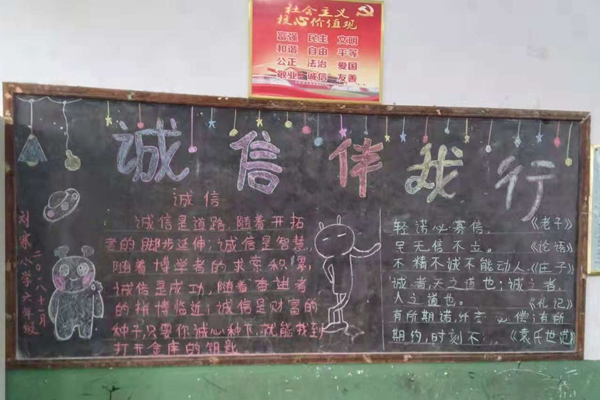 社会主义
核心价值观
富强 民主 文明
和谐 自由 平等
公正 法治 爱国
敬业 诚信 友善
诚信伴我行
诚信
诚信是道路,随着开拓
者的脚步延伸;诚信是智慧,
随着博学者的求索积累;
诚信是成功,随着奋进者
的拼搏临近;诚信是财富的
种子,只要你诚心种下,就能找到
打开金库的钥匙.
轻诺必寡信. 《老子》
民无信不立. 《论语》
不精不诚不能动人.《庄子》
诚者,天之道也;诚之者,
人之道也. 《礼记》
有所期诺,纤毫必偿;有所
期约,时刻不 《袁氏世范》
刘寨小学六年级
二〇一八十二月